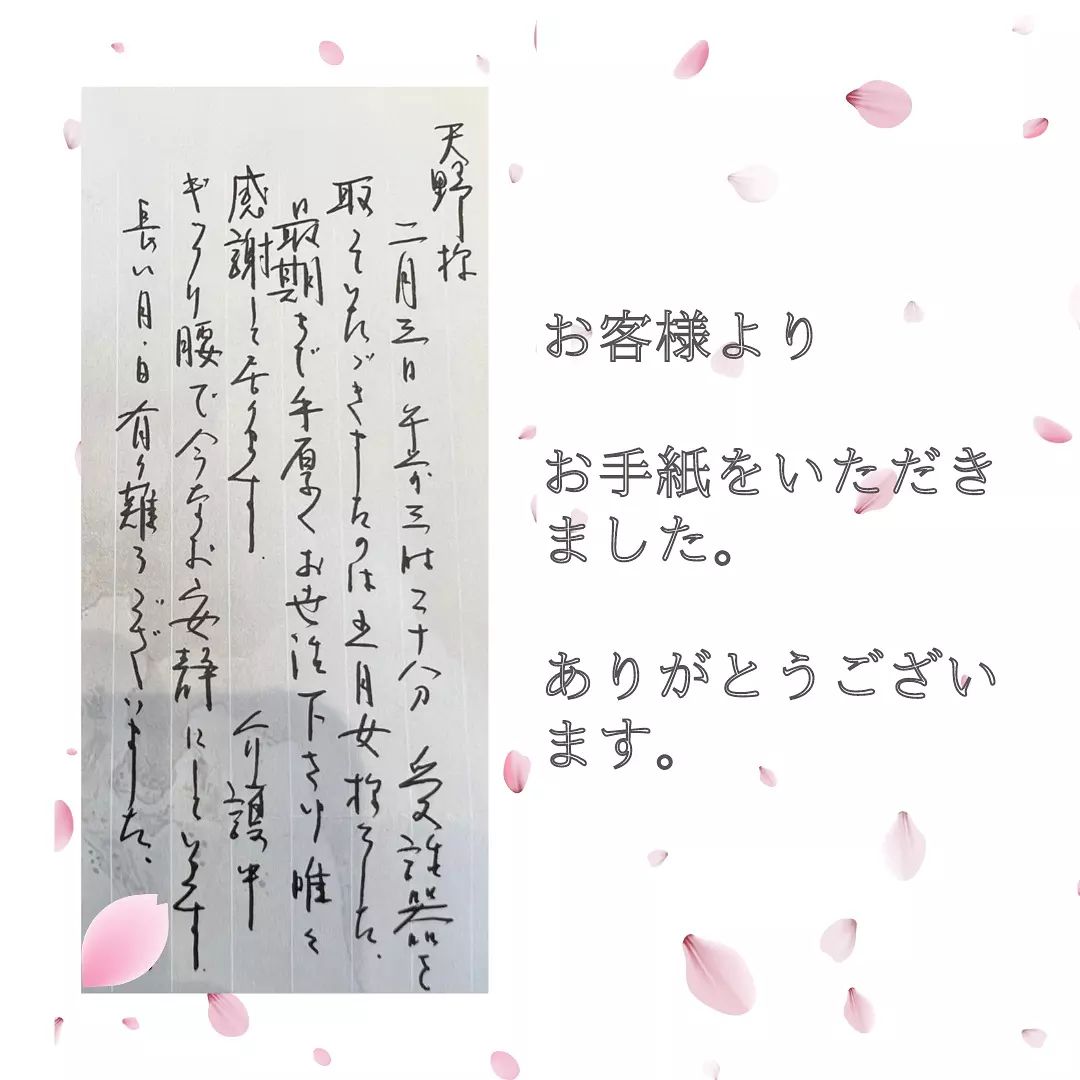 天野様
二月三日午前三時二十分 受話器を
取っていただきましたのは五月女様でした。
最期まで手厚くお世話下さり唯々
感謝して居ります。 介護中
ギックリ腰で今なお安静にしています。
長い月・日有り難うございました。
お客様より
お手紙をいただき
ました。
ありがとうござい
ます。